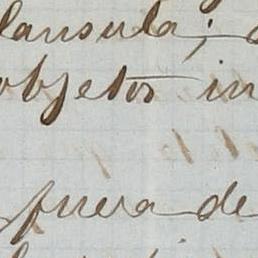 lausula;
objetos in
fuera de